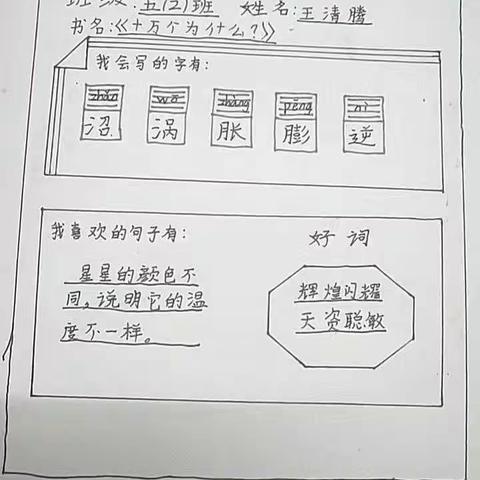 班级:五(2)班 姓名:王清腾
书名:《十万个为什么?》
我会写的字有:
zhǎo wō zhàng péng nì
沼 涡 胀 膨 逆
我喜欢的句子有:
好词
星星的颜色不
同,说明它的温
度不一样。
辉煌闪耀
天资聪敏